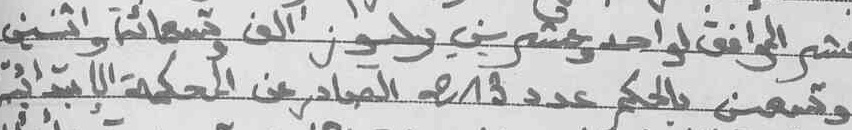 عشر الموافق لواحد وعشرين دجنبر ألف وتسعمائة واثنين
وتسعين بالحكم عدد 8213 الصادر عن المحكمة الابتدائية